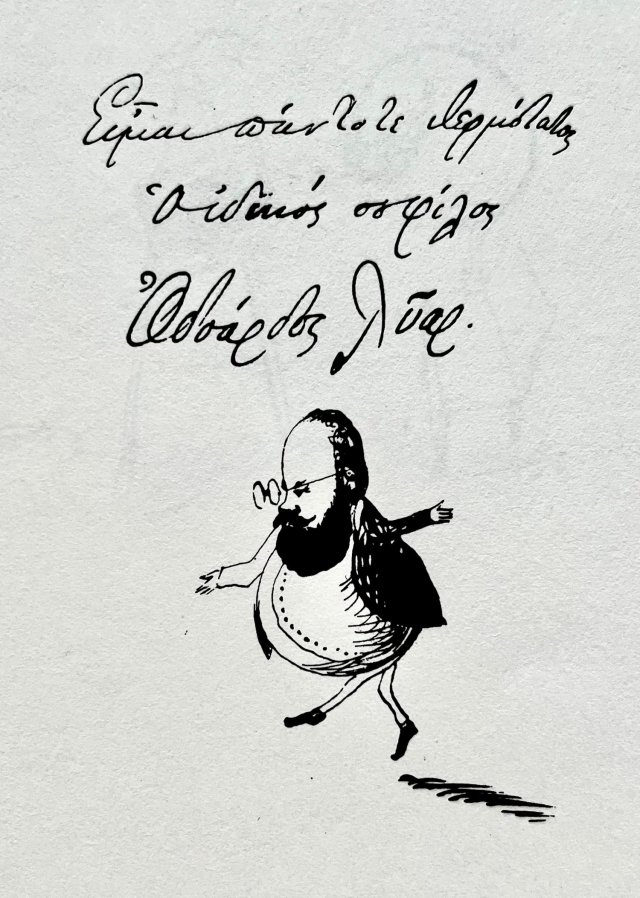 Εἶμαι πάντοτε θερμότατος
Ὁ ἰδικός σου φίλος
Ὀδουάρδος Λῦαρ.